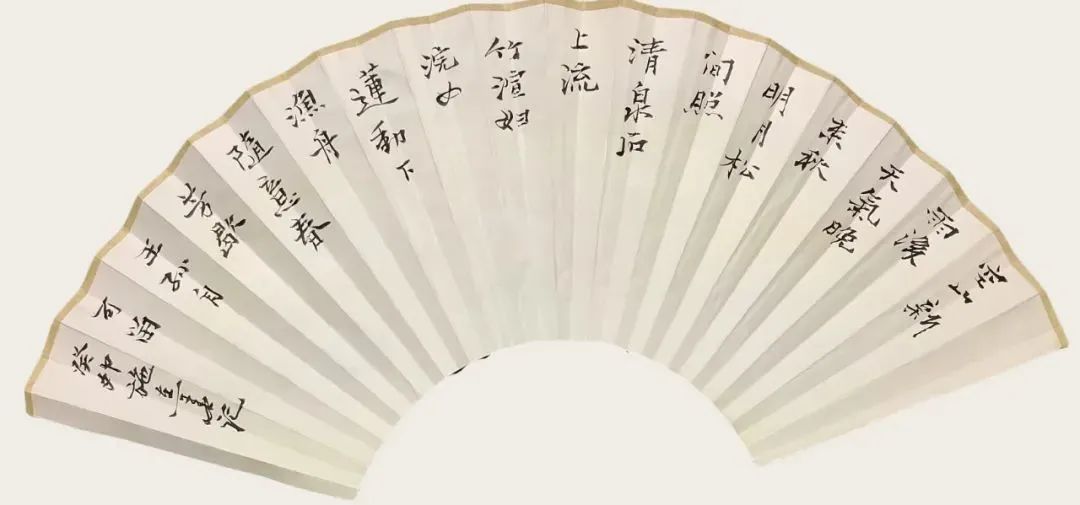 空山新
雨後
天氣晚
來秋
明月松
间照
清泉石
上流
竹渲歸
浣女
蓮動下
漁舟
隨意春
芳歇
王孫自
可留
癸卯施